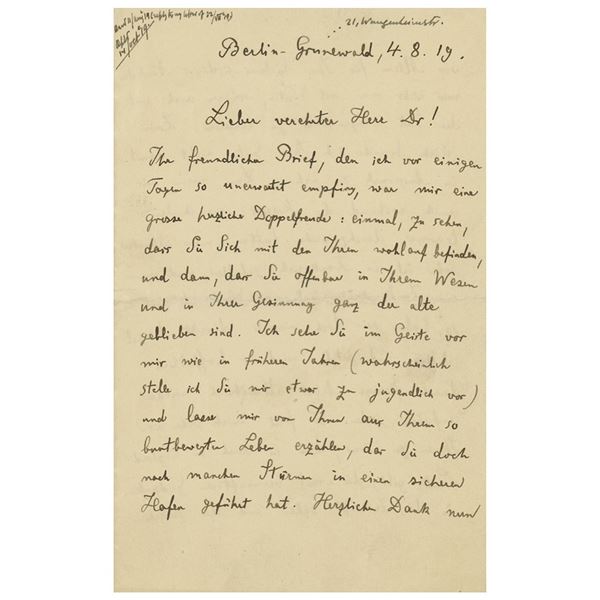 21, Wangenheimstr.
Berlin-Grunewald, 4.8.19.
Lieber verehrter Herr Dr!
Ihr freundlicher Brief, den ich vor einigen
Tagen so unerwartet empfing, war mir eine
grosse herzliche Doppelfreude: einmal, zu sehen,
dass Sie Sich mit den Ihren wohlauf befinden,
und dann, dass Sie offenbar in Ihrem Wesen
und in Ihrer Gesinnung ganz der alte
geblieben sind. Ich sehe Sie im Geiste vor
mir wie in früheren Jahren (wahrscheinlich
stelle ich Sie mir etwas zu jugendlich vor)
und lasse mir von Ihnen aus Ihrem so
buntbewegten Leben erzählen, das Sie doch
nach manchen Stürmen in einen sicheren
Hafen geführt hat. Herzlichen Dank nun